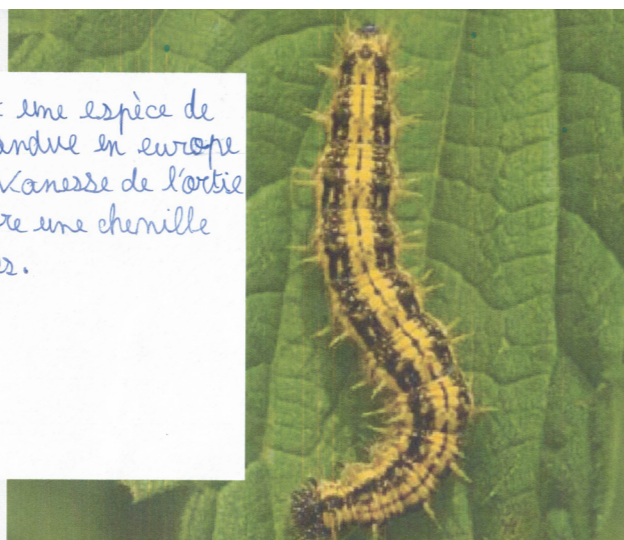 une espèce de
andue en europe
Vanesse de l'ortie
re une chenille
es.